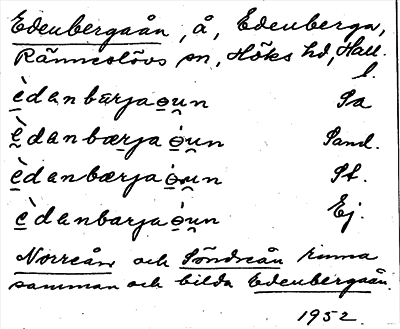 Edenbergaån, å, Edenberga,
Ränneslövs sn, Höks hd, Hall.
l.
èdanbärjao̯u̯n Sa
èdanbærjaó̯u̯n Sand.
èdanbærjaó̯u̯n St.
èdanbarjaó̯u̯n Ej.
Norreån och Söndreån rinna
samman och bilda Edenbergaån.
1952.